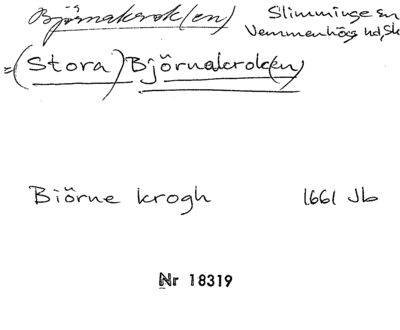 Björnakrok(en) Slimminge sn
Vemmenhögs hd, Sk
=(Stora) Björnakrok(en)
Biörne krogh 1661 Jb
Nr 18319